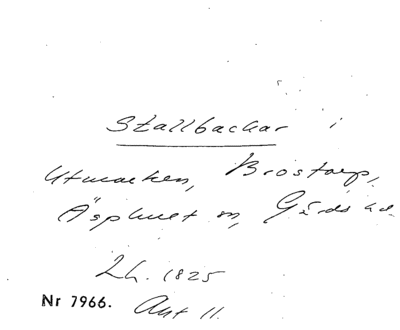 Stallbackar i
Utmarken, Brostorp,
Äsphult sn, Gärds hd.
Lh. 1825
Nr 7966. Akt 11.